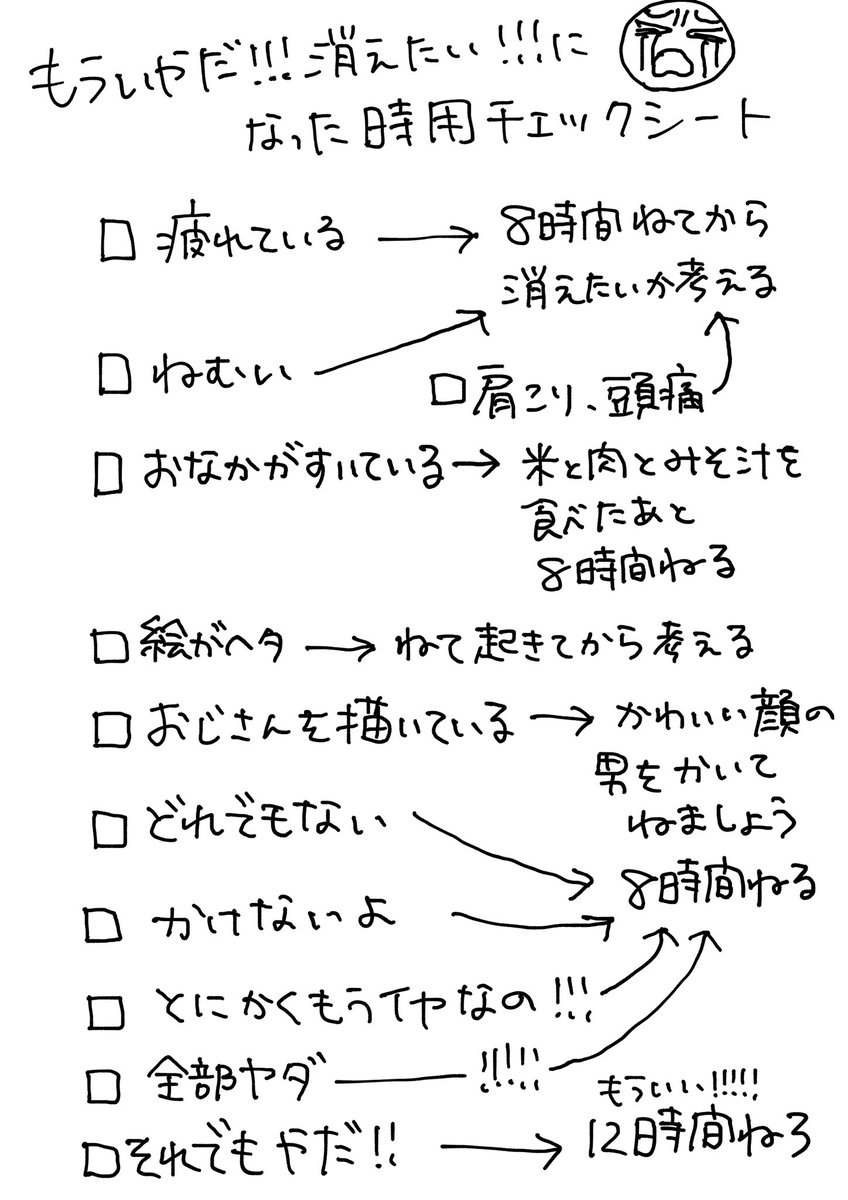 もういやだ!!!消えたい!!!に
なった時用チェックシート
□疲れている → 8時間ねてから
消えたいか考える
□ねむい
□肩こり、頭痛
□おなかがすいている→ 米と肉とみそ汁を
食べたあと
8時間ねる
□絵がヘタ → ねて起きてから考える
□おじさんを描いている → かわいい顔の
男をかいて
ねましょう
□どれでもない
8時間ねる
□かけないよ
□とにかくもうイヤなの!!!
□全部ヤダ !!!!!
もういい!!!!!
□それでもやだ!! → 12時間ねろ